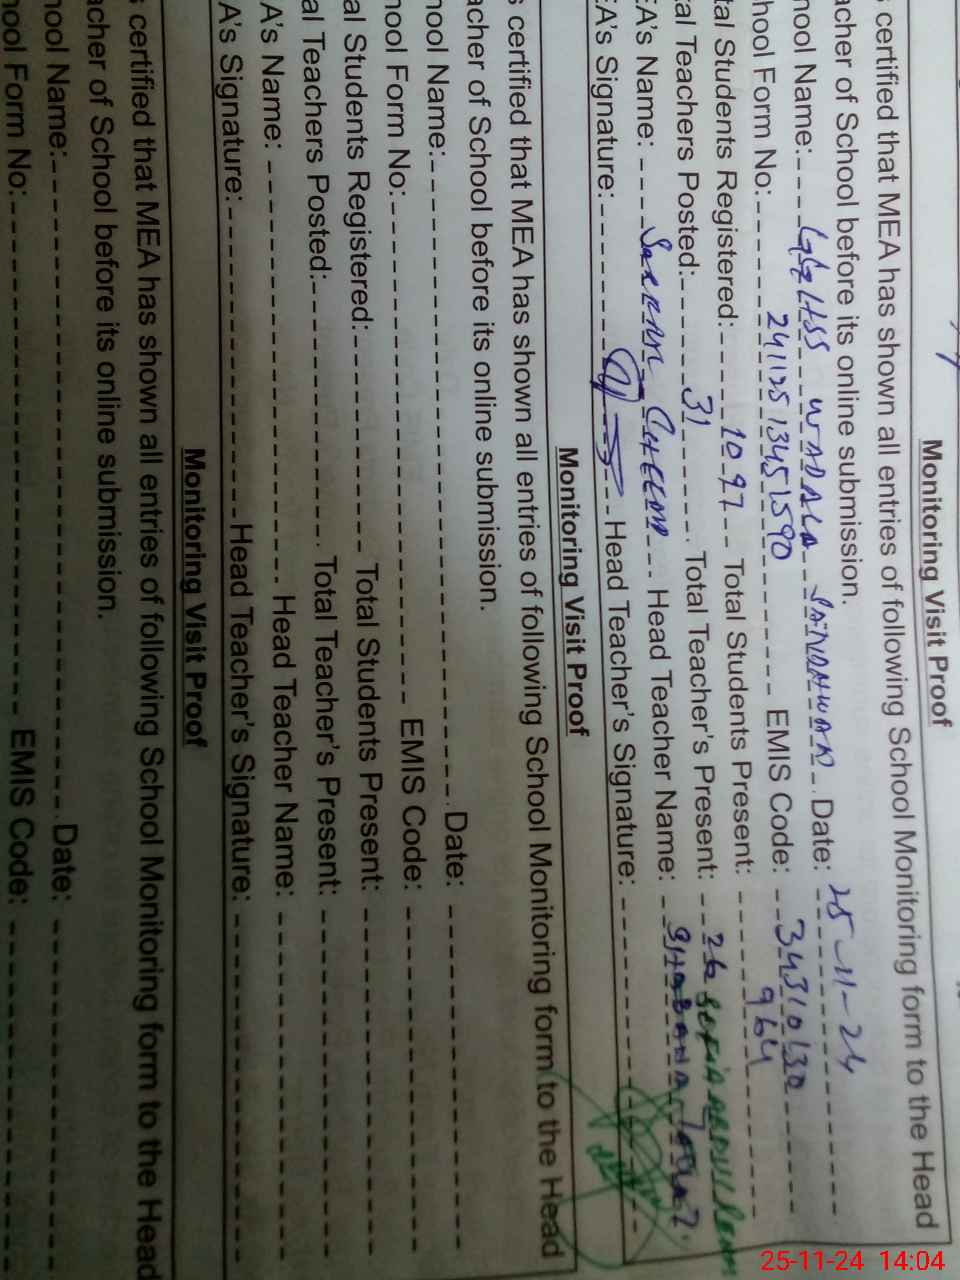 Monitoring Visit Proof
s certified that MEA has shown all entries of following School Monitoring form to the Head
acher of School before its online submission.
hool Name: WADALA SANDHWAN Date: 25-11-24
hool Form No: 24112513451590 EMIS Code: 34310130
tal Students Registered: 1097 Total Students Present: 964
tal Teachers Posted: 31 Total Teacher's Present: 26
EA's Name: Head Teacher Name:
EA's Signature: Head Teacher's Signature:
Monitoring Visit Proof
s certified that MEA has shown all entries of following School Monitoring form to the Head
acher of School before its online submission.
hool Name: Date:
hool Form No: EMIS Code:
al Students Registered: Total Students Present:
al Teachers Posted: Total Teacher's Present:
A's Name: Head Teacher Name:
A's Signature: Head Teacher's Signature:
Monitoring Visit Proof
s certified that MEA has shown all entries of following School Monitoring form to the Head
acher of School before its online submission.
hool Name: Date:
hool Form No: EMIS Code:
25-11-24 14:04